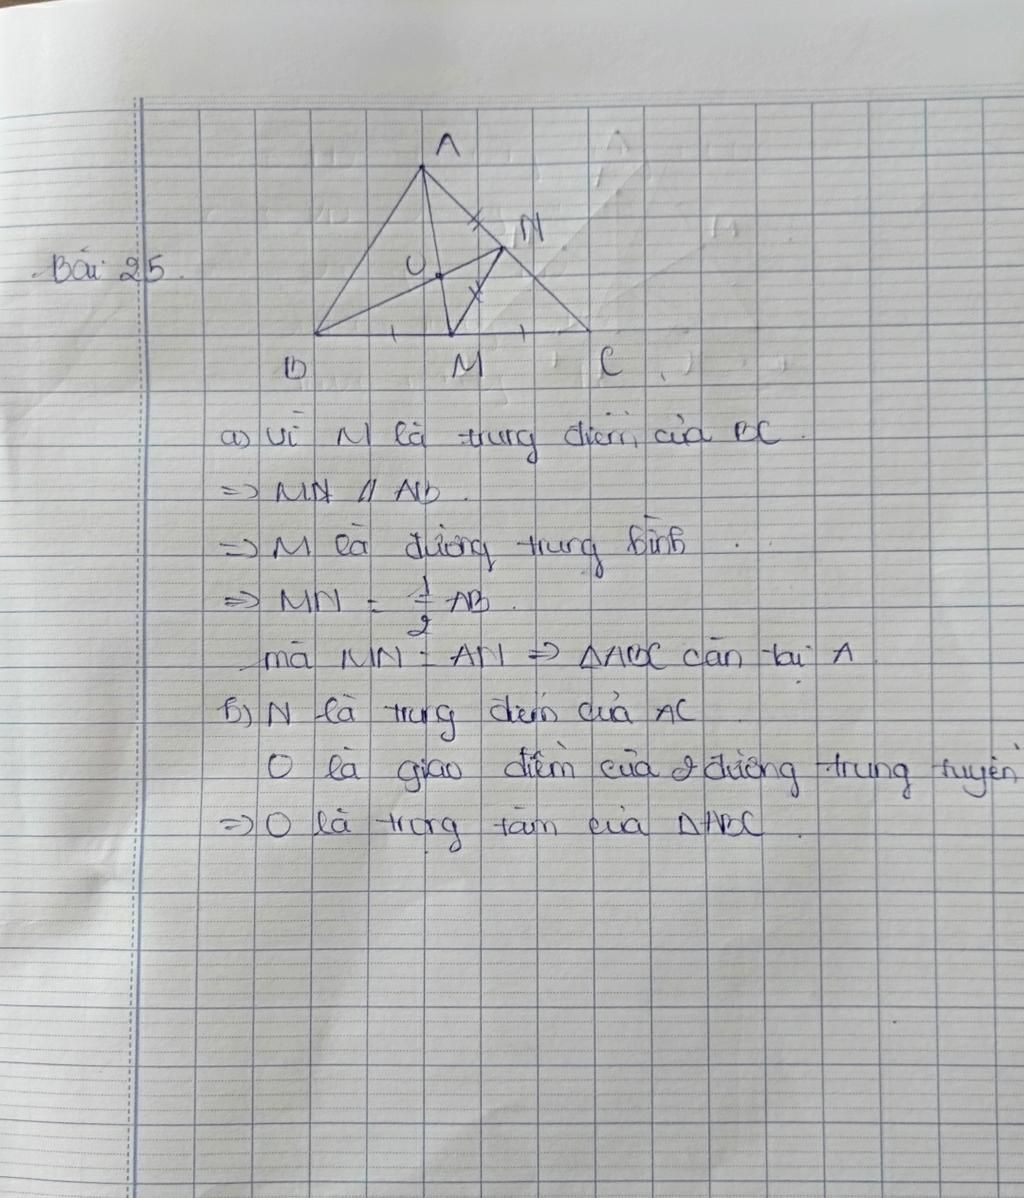 A
N
Bài 25.
O
B
M
C
a) Vì M là trung điểm của BC.
=> MN // AB.
=> M là đường trung bình
=> MN = 1/2 AB.
mà MN = AN => ΔABC cân tại A
b) N là trung điểm của AC
O là giao điểm của 2 đường trung tuyến
=> O là trọng tâm của ΔABC.